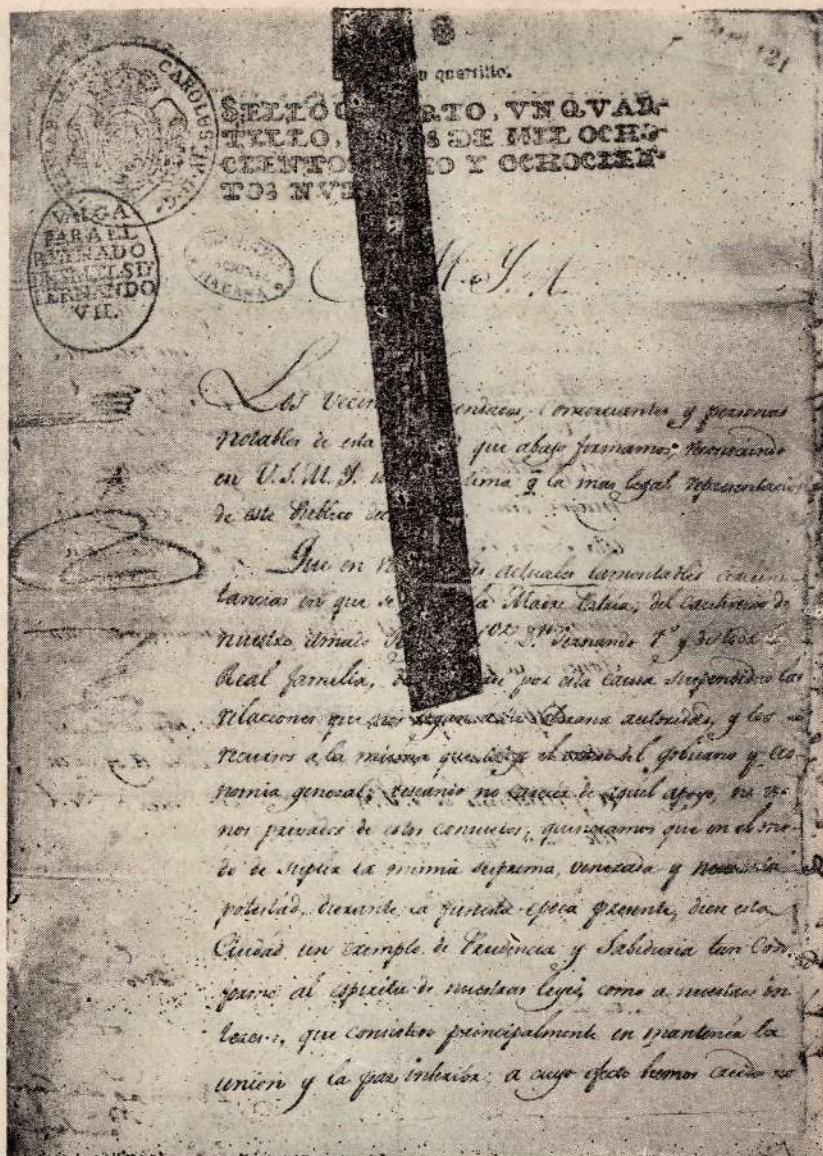 un quartillo.
121
SELLO QUARTO, VN QVAR-
TILLO, DE MIL OCHO-
CIENTOS Y OCHOCIEN-
TOS NVE
CAROLUS IV D G
VALGA
PARA EL
REYNADO
DEL SR D
FERNANDO
VII.
HABANA
M. Y. A.
Los vecin endados, Comerciantes y personas
notables de esta que abajo formamos, reconociendo
en V.S.M.Y. tima q la mas legal representacion
de este Publico
Que en actuales lamentables circuns-
tancias en que se la Madre Patria, del Cautiverio de
nuestro Amado Dn Fernando 7º y de toda la
Real familia, por esta causa suspendidas las
relaciones que nos autoridad, y los re-
cursos a la misma que el gobierno y eco-
nomia general; deseando no carecer de aquel apoyo, ni ver-
nos privados de estos consuelos; quisieramos que en el mo-
do de suplir la misma suprema, venerada y necesaria
potestad, durante la funesta epoca presente, diese esta
Ciudad un exemplo de Prudencia y Sabiduria tan con-
forme al espiritu de nuestras leyes, como a nuestros in-
tereses, que consisten principalmente en mantener la
union y la paz interior: a cuyo efecto hemos creido no